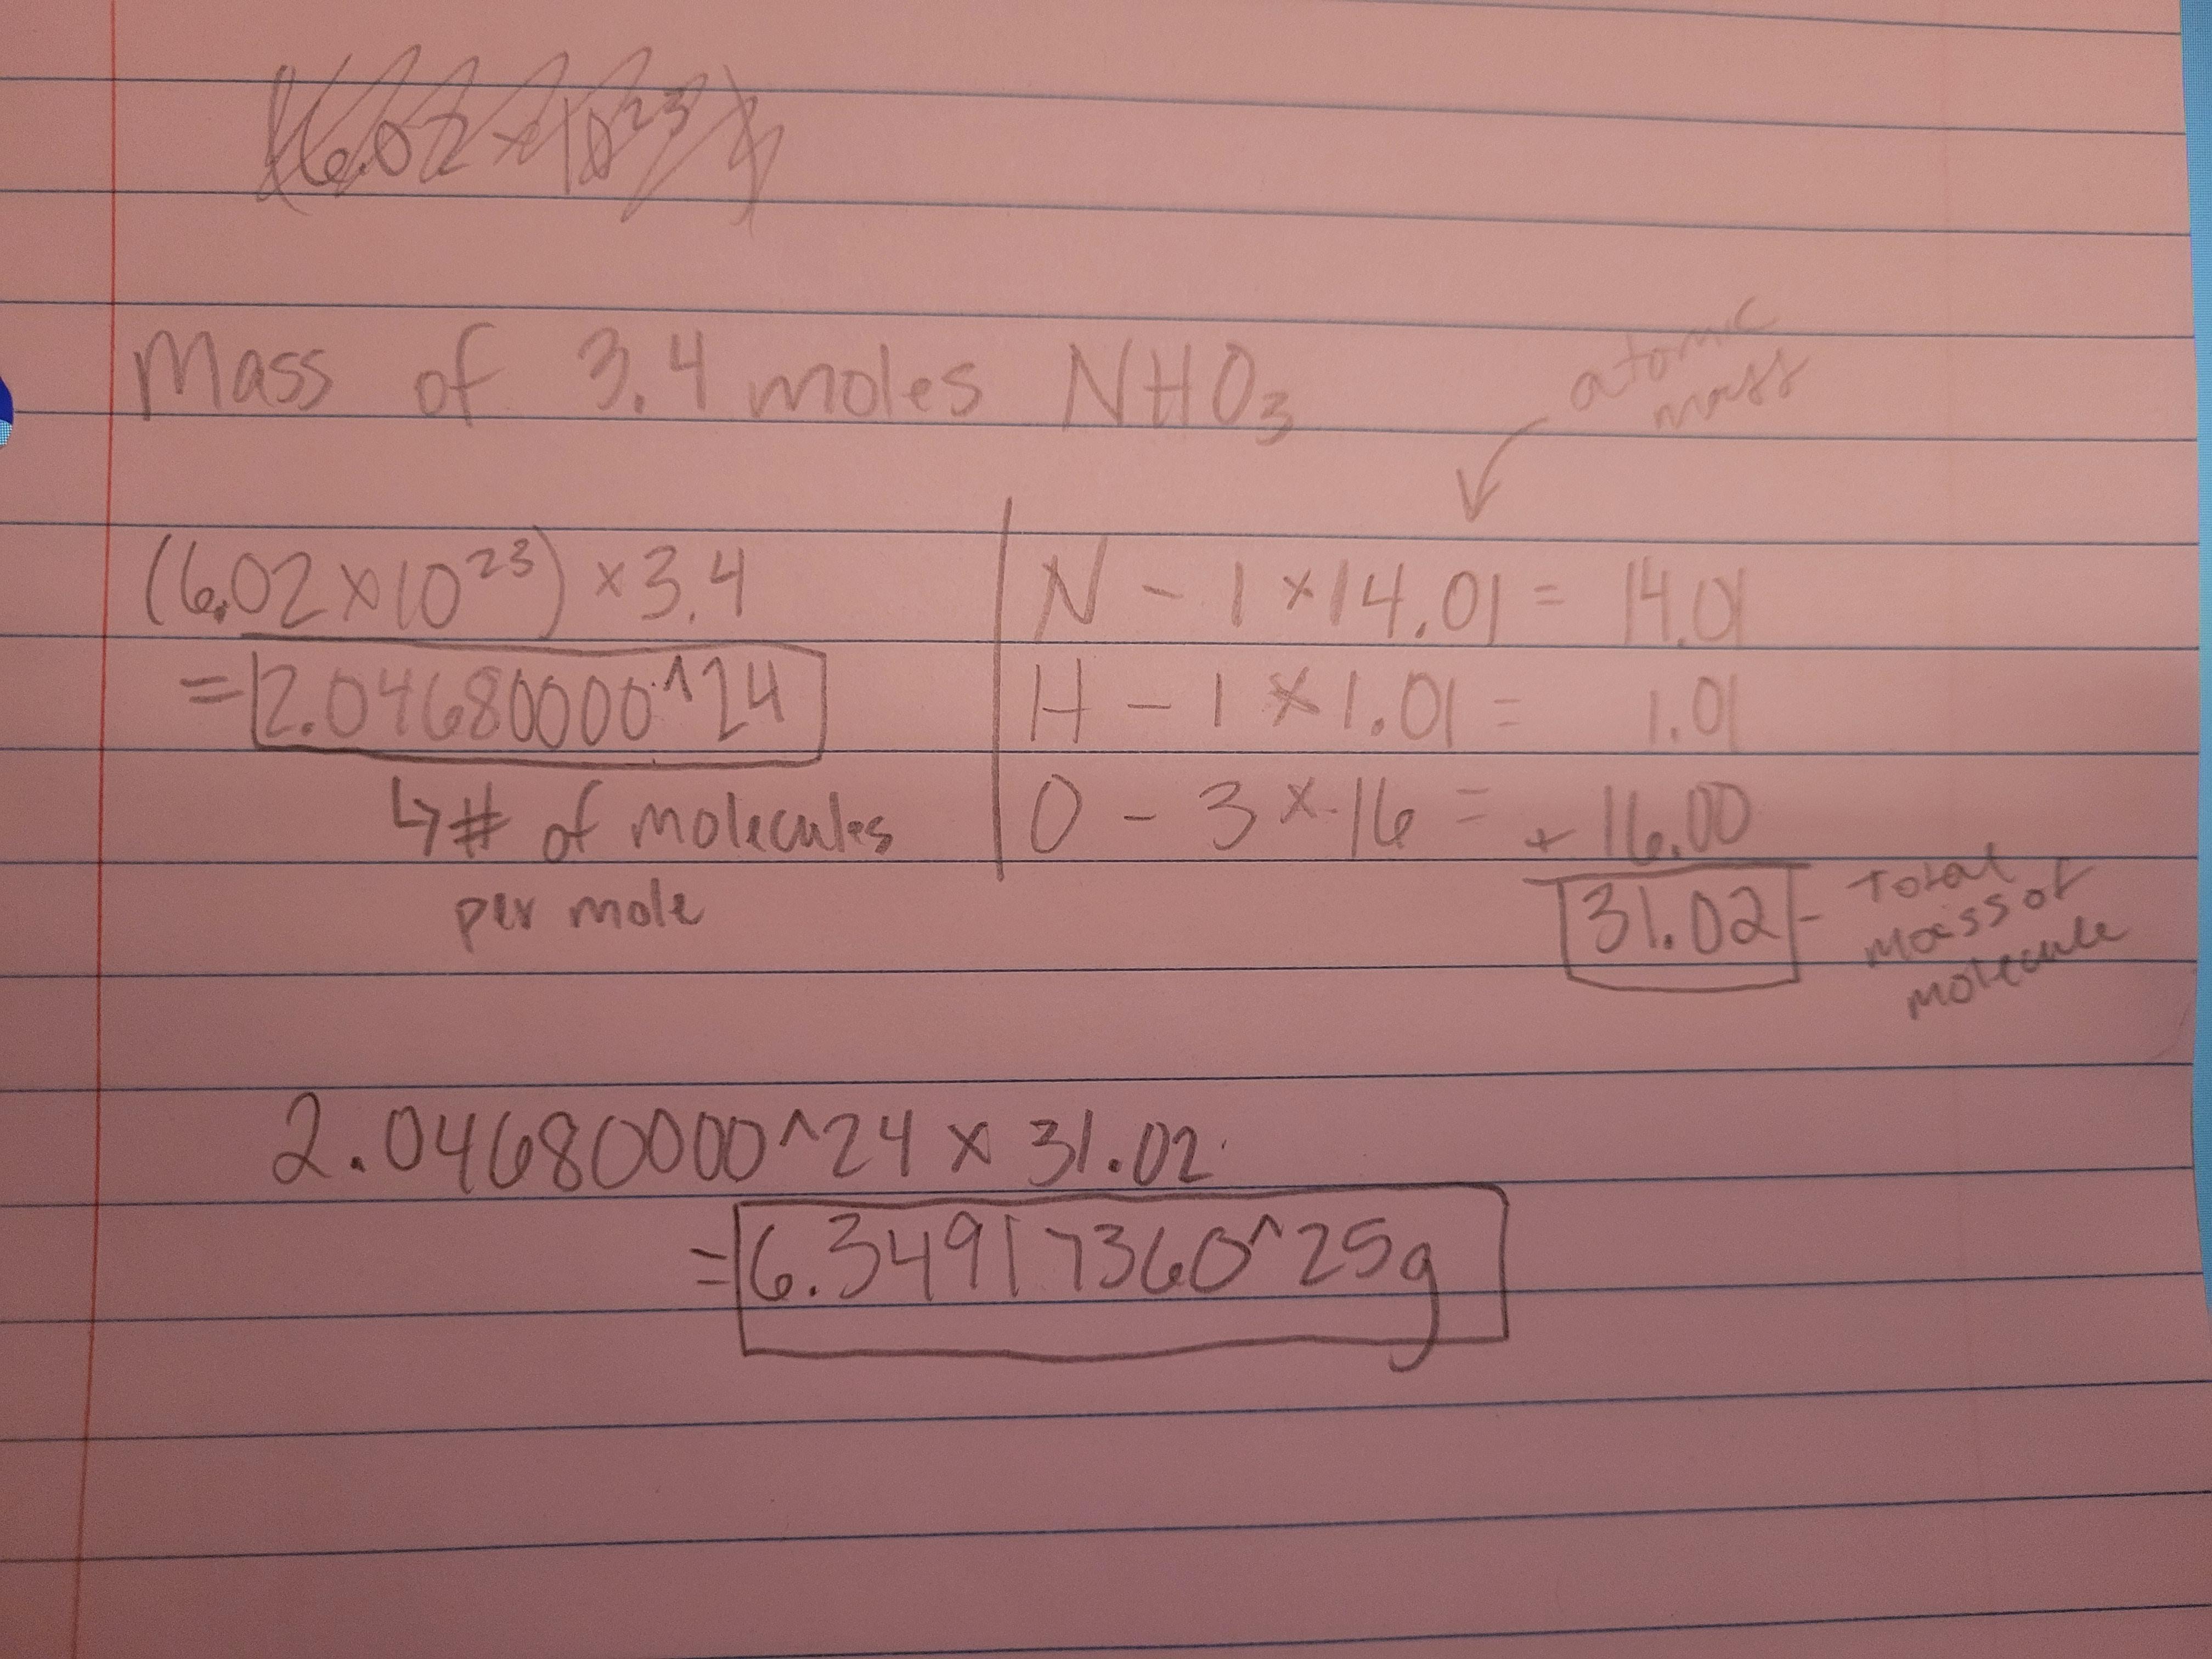 (6.02 × 10²³)
Mass of 3.4 moles NHO₃
atomic
mass
(6.02 × 10²³) × 3.4
= 2.04680000^24
↳ # of molecules
per mole
N - 1 × 14.01 = 14.01
H - 1 × 1.01 = 1.01
O - 3 × 16 = + 16.00
31.02 - Total
mass of
molecule
2.04680000^24 × 31.02
= 6.34917360^25g